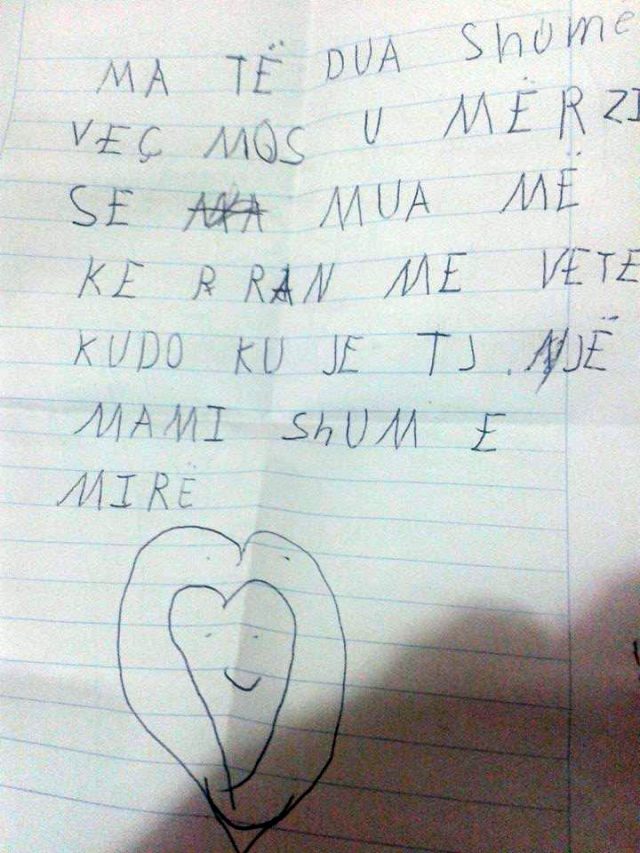 MA TË DUA ShUME
VEÇ MOS U MËRZI
SE MUA MË
KE R RAN ME VETE
KUDO KU JE TJ NJË
MAMI ShUM E
MIRË